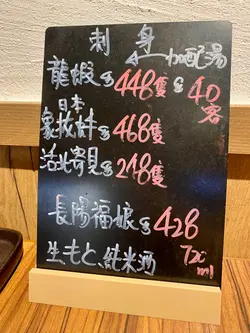 刺身
加配湯
龍蝦 $448隻 $40客
日本
象拔蚌 $468隻
活北寄貝 $248隻
長陽福娘 $428
生もと、純米酒 720ml